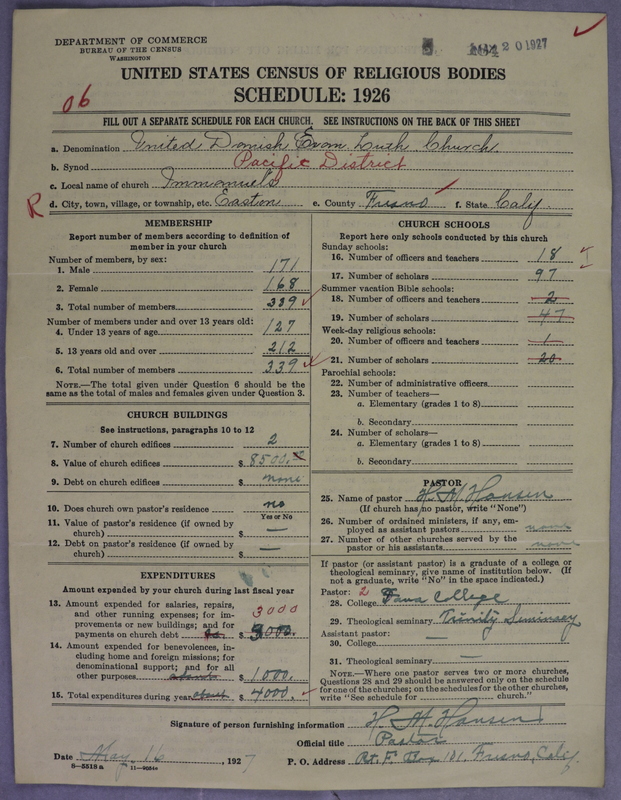 DEPARTMENT OF COMMERCE
BUREAU OF THE CENSUS
WASHINGTON
MAY 20 1927
UNITED STATES CENSUS OF RELIGIOUS BODIES
SCHEDULE: 1926
06
FILL OUT A SEPARATE SCHEDULE FOR EACH CHURCH. SEE INSTRUCTIONS ON THE BACK OF THIS SHEET
a. Denomination United Danish Evan. Luth. Church
b. Synod Pacific District
c. Local name of church Immanuel's
R d. City, town, village, or township, etc. Easton e. County Fresno f. State Calif.
MEMBERSHIP
Report number of members according to definition of
member in your church
Number of members, by sex:
1. Male 171
2. Female 168
3. Total number of members 339
Number of members under and over 13 years old:
4. Under 13 years of age 127
5. 13 years old and over 212
6. Total number of members 339
NOTE.—The total given under Question 6 should be the
same as the total of males and females given under Question 3.
CHURCH BUILDINGS
See instructions, paragraphs 10 to 12
7. Number of church edifices 2
8. Value of church edifices $ 8500.
9. Debt on church edifices $ none
10. Does church own pastor's residence no
Yes or No
11. Value of pastor's residence (if owned by
church) $ —
12. Debt on pastor's residence (if owned by
church) $ —
EXPENDITURES
Amount expended by your church during last fiscal year
13. Amount expended for salaries, repairs,
and other running expenses; for im-
provements or new buildings; and for
payments on church debt $ 3000
3000.
14. Amount expended for benevolences, in-
cluding home and foreign missions; for
denominational support; and for all
other purposes about $ 1000.
15. Total expenditures during year about $ 4000.
CHURCH SCHOOLS
Report here only schools conducted by this church
Sunday schools:
16. Number of officers and teachers 18
17. Number of scholars 97
Summer vacation Bible schools:
18. Number of officers and teachers 2
19. Number of scholars 47
Week-day religious schools:
20. Number of officers and teachers 1
21. Number of scholars 20
Parochial schools:
22. Number of administrative officers
23. Number of teachers—
a. Elementary (grades 1 to 8)
b. Secondary
24. Number of scholars—
a. Elementary (grades 1 to 8)
b. Secondary
PASTOR
25. Name of pastor H. M. Hansen
(If church has no pastor, write "None")
26. Number of ordained ministers, if any, em-
ployed as assistant pastors none
27. Number of other churches served by the
pastor or his assistants none
If pastor (or assistant pastor) is a graduate of a college or
theological seminary, give name of institution below. (If
not a graduate, write "No" in the space indicated.)
Pastor: 2
28. College Dana College
29. Theological seminary Trinity Seminary
Assistant pastor:
30. College —
31. Theological seminary —
NOTE.—Where one pastor serves two or more churches,
Questions 28 and 29 should be answered only on the schedule
for one of the churches; on the schedules for the other churches,
write "See schedule for church."
Signature of person furnishing information H. M. Hansen
Official title Pastor
Date May 16, 1927 P. O. Address Rt. F. Box 181 Fresno, Calif.
8—5518 a 11—9054